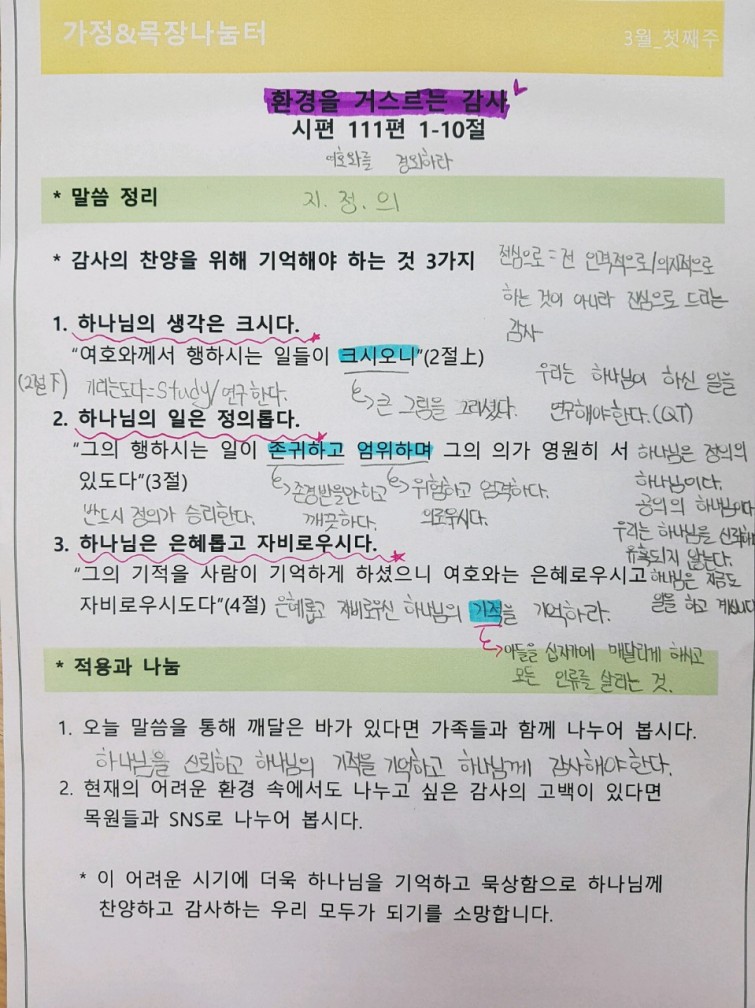 가정&목장나눔터
3월_첫째주
환경을 거스르는 감사
시편 111편 1-10절
여호와를 경외하라
* 말씀 정리
지. 정. 의
* 감사의 찬양을 위해 기억해야 하는 것 3가지
전심으로 = 전 인격적으로/의지적으로
하는 것이 아니라 진심으로 드리는
감사
1. 하나님의 생각은 크시다.
"여호와께서 행하시는 일들이 크시오니"(2절上)
(2절下) 기리는도다=Study/연구한다.
큰 그림을 그리셨다.
우리는 하나님이 하신 일을
연구해야한다.(QT)
2. 하나님의 일은 정의롭다.
"그의 행하시는 일이 존귀하고 엄위하며 그의 의가 영원히 서
있도다"(3절)
반드시 정의가 승리한다.
존경받을만하고
깨끗하다.
위험하고 엄격하다.
의로우시다.
하나님은 정의의
하나님이다.
공의의 하나님이다
우리는 하나님을 신뢰해
유혹되지 않는다.
하나님은 지금도
일을 하고 계시다
3. 하나님은 은혜롭고 자비로우시다.
"그의 기적을 사람이 기억하게 하셨으니 여호와는 은혜로우시고
자비로우시도다"(4절)
은혜롭고 자비로우신 하나님의 기적을 기억하라.
아들을 십자가에 매달리게 하시고
모든 인류를 살리는 것.
* 적용과 나눔
1. 오늘 말씀을 통해 깨달은 바가 있다면 가족들과 함께 나누어 봅시다.
하나님을 신뢰하고 하나님의 기적을 기억하고 하나님께 감사해야한다.
2. 현재의 어려운 환경 속에서도 나누고 싶은 감사의 고백이 있다면
목원들과 SNS로 나누어 봅시다.
* 이 어려운 시기에 더욱 하나님을 기억하고 묵상함으로 하나님께
찬양하고 감사하는 우리 모두가 되기를 소망합니다.